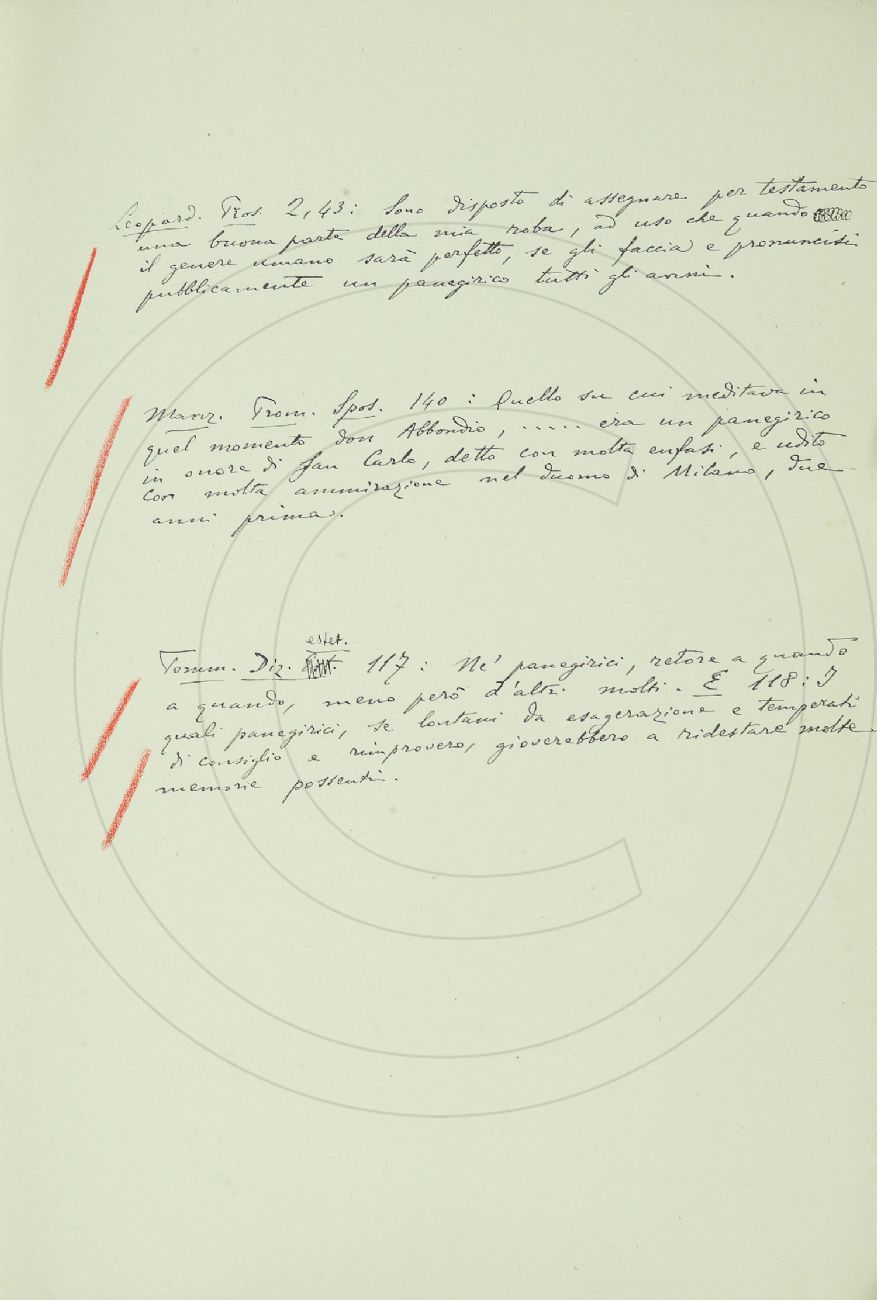 Leopard. Pros. 2, 43: Sono disposto di assegnare per testamento
una buona parte della mia roba, ad uso che quando
il genere umano sarà perfetto, se gli faccia e pronuncisi
pubblicamente un panegirico tutti gli anni.
Manz. Prom. Spos. 140: Quello su cui meditava in
quel momento don Abbondio, ..... era un panegirico
in onore di San Carlo, detto con molta enfasi, e udito
con molta ammirazione nel duomo di Milano, due
anni prima.
estet.
Tomm. Diz. 117: Nè panegirici, retore a quando
a quando, meno però d'altri molti. E 118: I
quali panegirici, se lontani da esagerazione e temperati
di consiglio e rimprovero, gioverebbero a ridestare molte
memorie possenti.